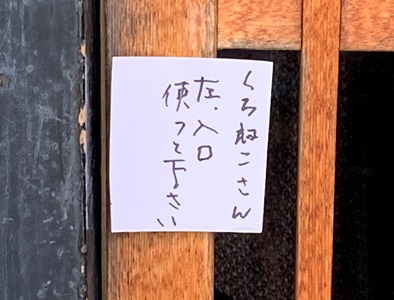 くろねこさん
左、入口
使って下さい